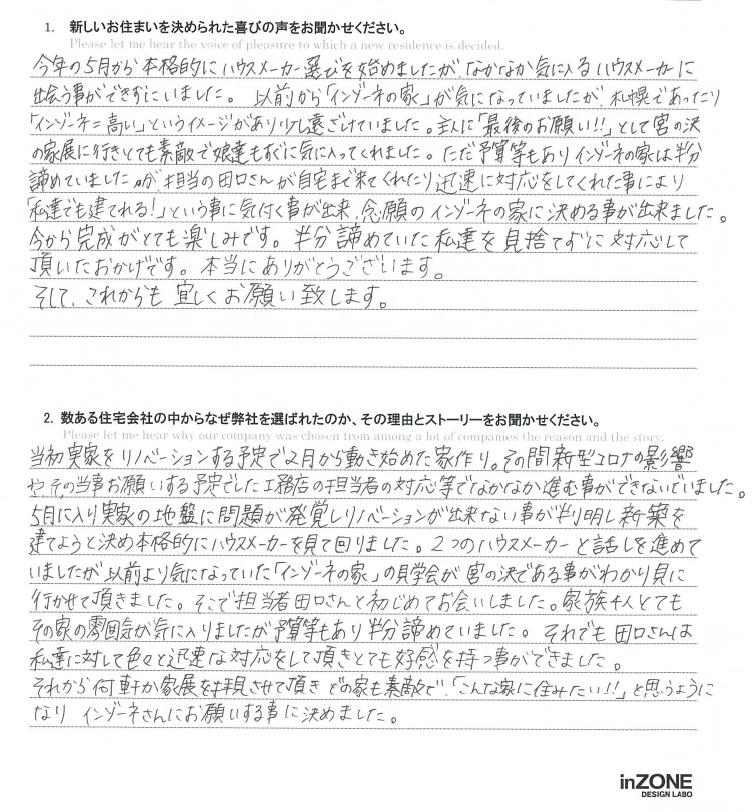 1. 新しいお住まいを決められた喜びの声をお聞かせください。
Please let me hear the voice of pleasure to which a new residence is decided.
今年の5月から本格的にハウスメーカー選びを始めましたが、なかなか気に入るハウスメーカーに
出会う事ができずにいました。 以前から「インゾーネの家」が気になっていましたが、札幌であったり
「インゾーネ=高い」というイメージがあり少し遠ざけていました。主人に「最後のお願い!!」として宮の沢
の家展に行きとても素敵で娘達もすぐに気に入ってくれました。ただ予算等もありインゾーネの家は半分
諦めていました。が担当の田口さんが自宅まで来てくれたり迅速に対応をしてくれた事により
「私達でも建てれる!」という事に気付く事が出来、念願のインゾーネの家に決める事が出来ました。
今から完成がとても楽しみです。半分諦めていた私達を見捨てずに対応して
頂いたおかげです。本当にありがとうございます。
そして、これからも宜しくお願い致します。
2. 数ある住宅会社の中からなぜ弊社を選ばれたのか、その理由とストーリーをお聞かせください。
Please let me hear why our company was chosen from among a lot of companies the reason and the story.
当初実家をリノベーションする予定で2月から動き始めた家作り。その間新型コロナの影響
やその当事お願いする予定でした工務店の担当者の対応等でなかなか進む事ができないでいました。
5月に入り実家の地盤に問題が発覚しリノベーションが出来ない事が判明し新築を
建てようと決め本格的にハウスメーカーを見て回りました。2つのハウスメーカーと話しを進めて
いましたが以前より気になっていた「インゾーネの家」の見学会が宮の沢である事がわかり見に
行かせて頂きました。そこで担当者田口さんと初じめてお会いしました。家族4人とても
その家の雰囲気が気に入りましたが予算等もあり半分諦めていました。それでも田口さんは
私達に対して色々と迅速な対応をして頂きとても好感を持つ事ができました。
それから何軒か家展を拝見させて頂きどの家も素敵で「こんな家に住みたい!!」と思うように
なり インゾーネさんにお願いする事に決めました。
inZONE
DESIGN LABO